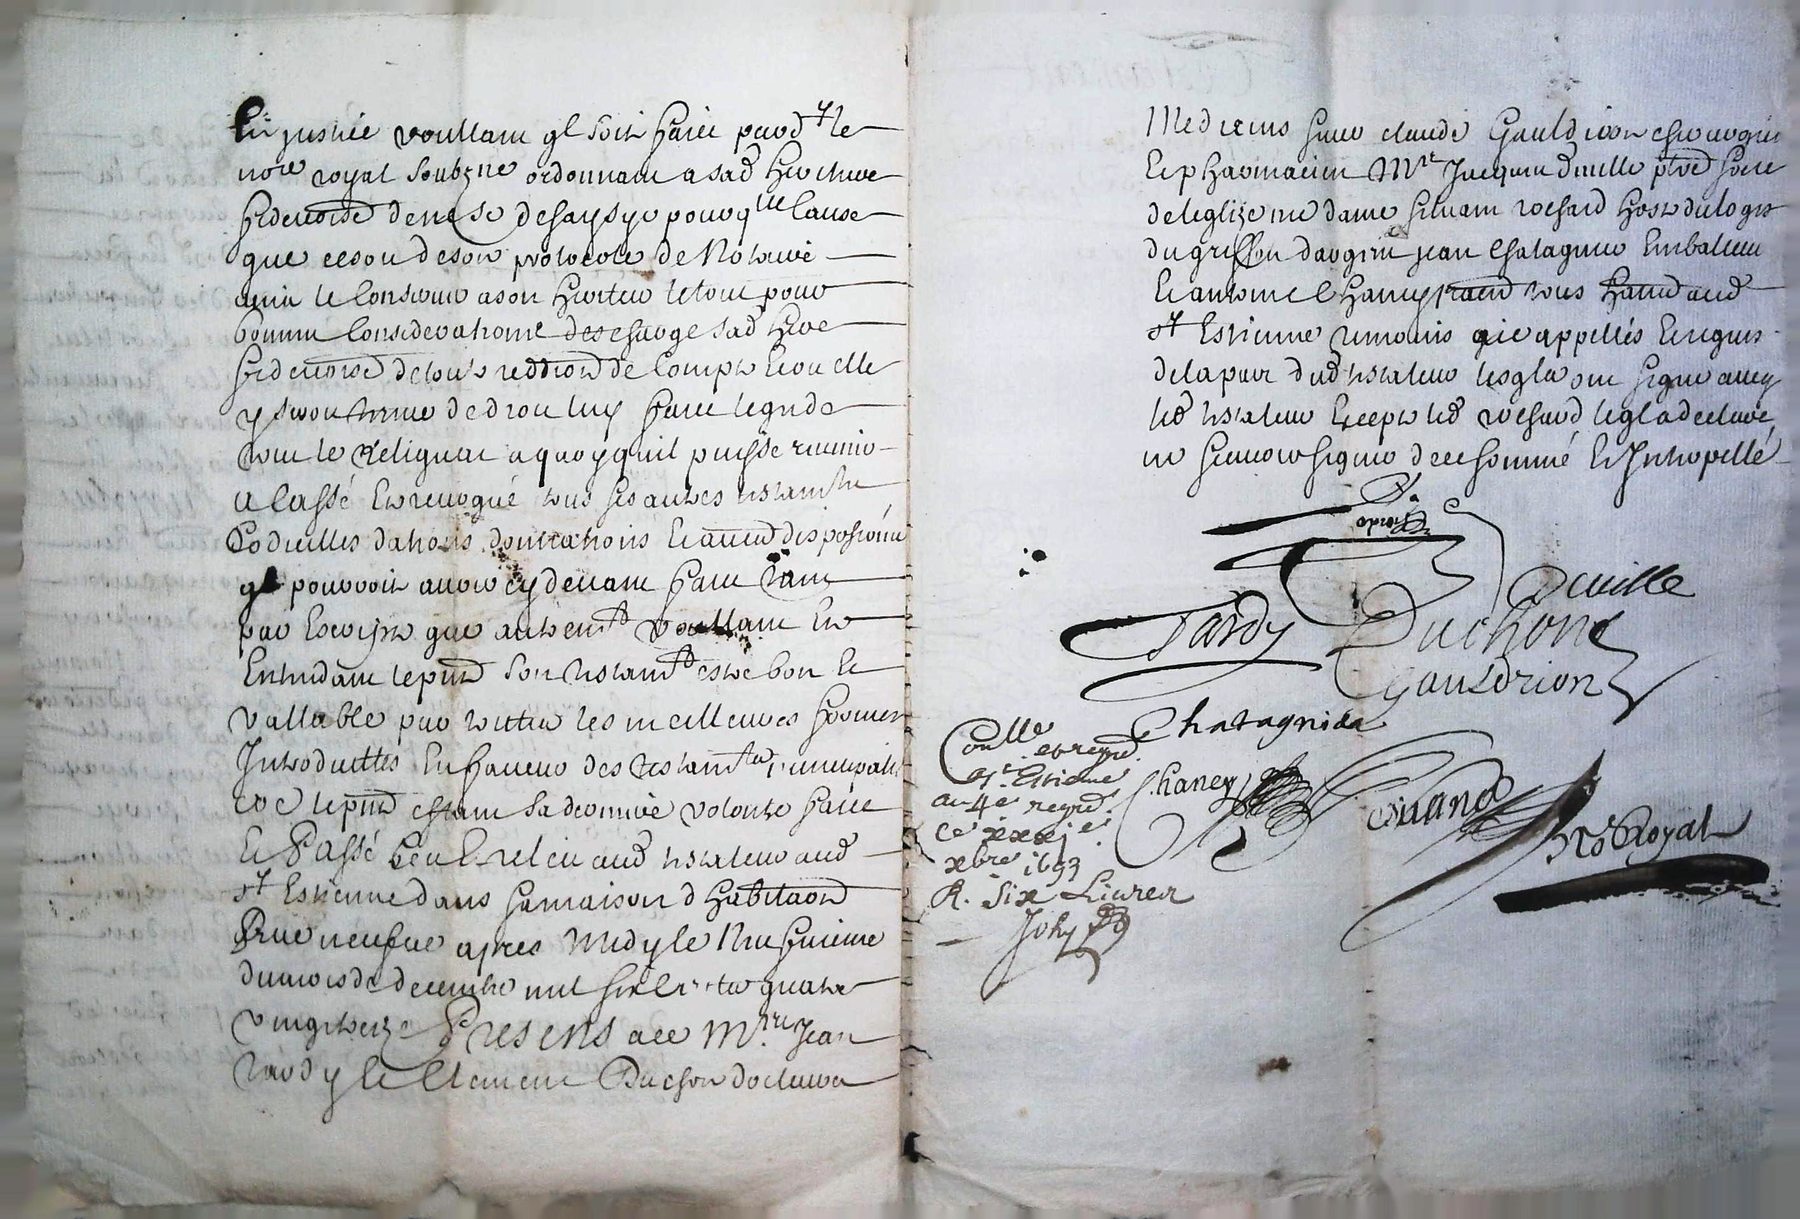 En justice voullant ql soit faict par d^t le
no^re royal soubzne ordonnant a sad heretiere
fideicoise de ne se desaysyr pour q^lle cause
que ce soit de son protocole de Notaire
ains le Conserver a son heritier le tout pour
bonnes Considerations descharge sad here
fideicoise de touts reddiond de Compte Et ou elle
y seroit tenue de droit luy faict legudz de
tout le Reliqua a quoy quil puisse revenir
A Cassé Et revoqué tous ses autres testam^ts
Codicilles dations donnations Et autres disposiones
ql pourroit avoir cy devant faict tant
par Escript que autrem^t Voullant Et
Entendant le pnt son testam^t estre bon Et
vallable par toutes les meilleures formes
Introduittes En faveur des testam^ts
le pnt estant sa derniere volonte faict
Et Passé leu Et releu aud testateur aud
s^t Estienne dans sa maison d habitaon
Rue neufve apres Midy le Neufvieme
du mois de decembre mil six Cents quatre
vingt treize Presens a ce M^re Jean
Tardy Et Clement Duchon docteurs
Medecins sieur claude Gauldrion chirurgien
Et pharmacien M^re Jacques deville ptre socie
de leglize ne dame rochard hoste du logis
du griffon dargent jean Chatagnier Emballeur
Et antoine Chaney tous habitt aud
s^t Estienne temoins qie appellés Et requis
de la part dud testateur lesqls ont signe avec
led testateur Excepte led rochard leql a declaré
ne scavoir signer de ce sommé Et Interpellé
Deville
Tardy Duchon
Gauldrion
Chatagnier
Chaney
No^re Royal
Con^lle et regré
a s^t Estienne
au 4e regré
ce xxxj^e
xbre 1693
R. Six Livres